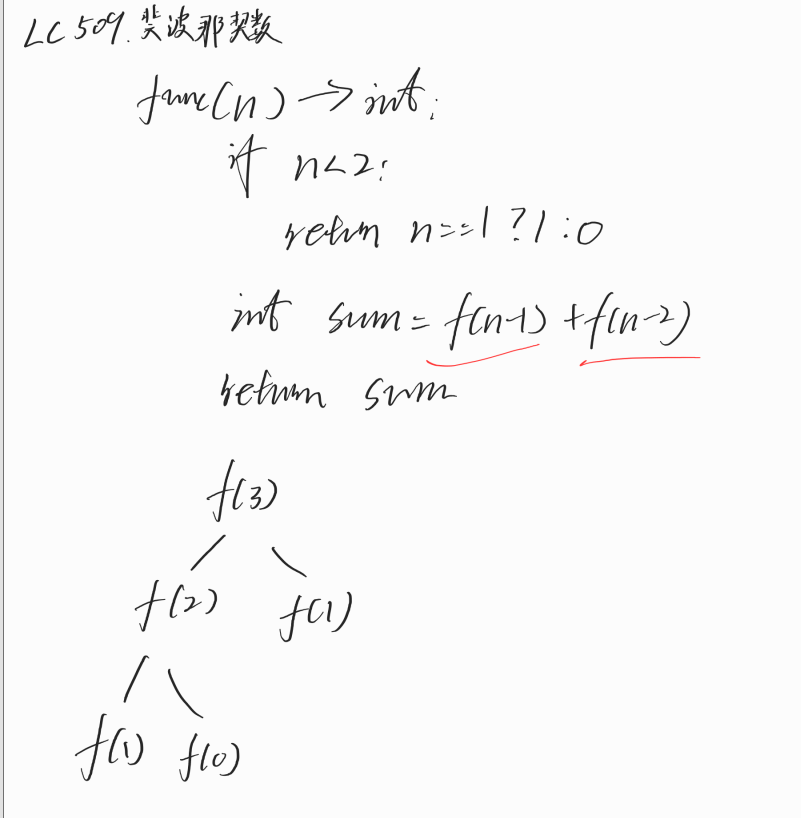 LC 509. 斐波那契数
func(n) → int:
if n<2:
return n==1 ? 1 : 0
int sum = f(n-1) + f(n-2)
return sum
f(3)
f(2) f(1)
f(1) f(0)